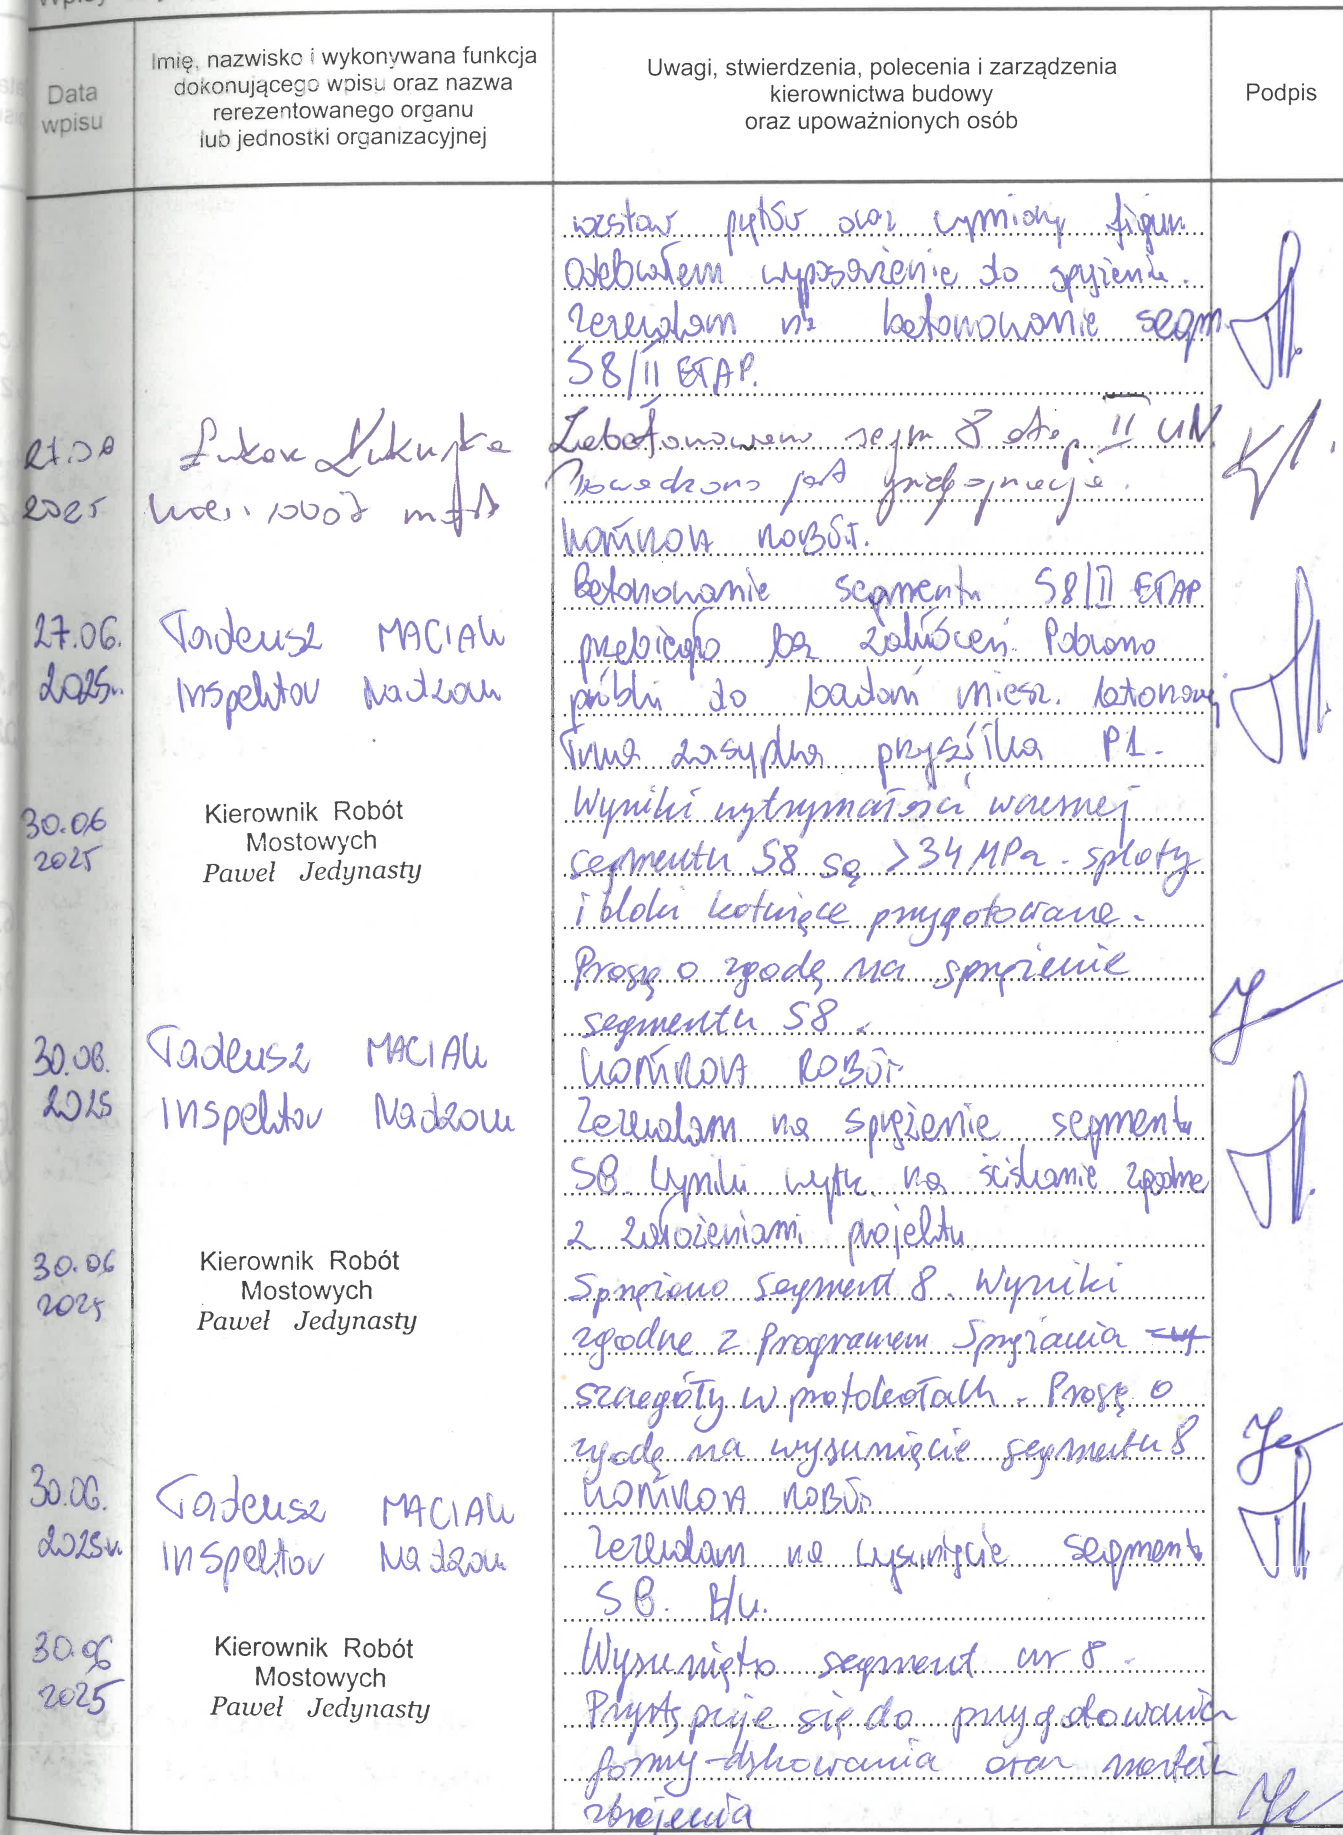 Data
wpisu
Imię, nazwisko i wykonywana funkcja
dokonującego wpisu oraz nazwa
rerezentowanego organu
lub jednostki organizacyjnej
Uwagi, stwierdzenia, polecenia i zarządzenia
kierownictwa budowy
oraz upoważnionych osób
Podpis
oraz wymiany figur.
Odebrałem wyposażenie do sprężenia.
Zezwalam na betonowanie segm.
S8/II ETAP.
27.06
2025
Łukasz
Zabetonowano segm 8 etap II UN.
Prowadzona jest pielęgnacja.
KONTROLA ROBÓT.
27.06.
2025r.
Tadeusz MACIAK
Inspektor Nadzoru
Betonowanie segmentu S8/II ETAP
przebiegło bez zakłóceń. Pobrano
próbki do badań miesz. betonowej
Trwa zasypka przyczółka P1.
30.06
2025
Kierownik Robót
Mostowych
Paweł Jedynasty
Wyniki wytrzymałości wczesnej
segmentu S8 są >34 MPa. sploty
i bloki kotwiące przygotowane.
Proszę o zgodę na sprężenie
segmentu S8.
30.06.
2025
Tadeusz MACIAK
Inspektor Nadzoru
KONTROLA ROBÓT
Zezwalam na sprężenie segmentu
S8. Wyniki wytrz. na ściskanie zgodne
z założeniami projektu
30.06
2025
Kierownik Robót
Mostowych
Paweł Jedynasty
Sprężono Segment 8. Wyniki
zgodne z Programem Sprężania
szczegóły w protokołach. Proszę o
zgodę na wysunięcie segmentu 8
30.06.
2025r.
Tadeusz MACIAK
Inspektor Nadzoru
KONTROLA ROBÓT
Zezwalam na wysunięcie segmentu
S8. B/U.
30.06
2025
Kierownik Robót
Mostowych
Paweł Jedynasty
Wysunięto segment nr 8.
Przystępuje się do przygotowania
formy-deskowania oraz
zbrojenia